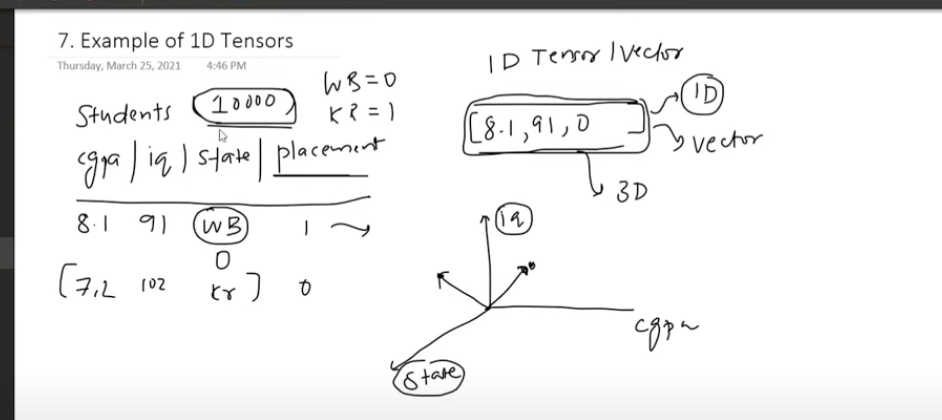 7. Example of 1D Tensors
Thursday, March 25, 2021 4:46 PM
Students 10000
WB=0
KR=1
cgpa | iq | state | placement
8.1 91 WB 1
0
[7.2 102 Kr] 0
1D Tensor/Vector
[8.1, 91, 0]
1D
vector
3D
iq
cgpa
state